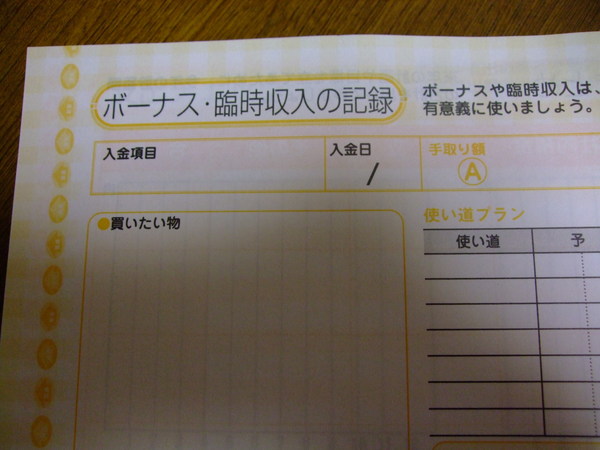 ボーナス・臨時収入の記録
ボーナスや臨時収入は、
有意義に使いましょう。
入金項目
入金日
/
手取り額
A
●買いたい物
使い道プラン
使い道
予